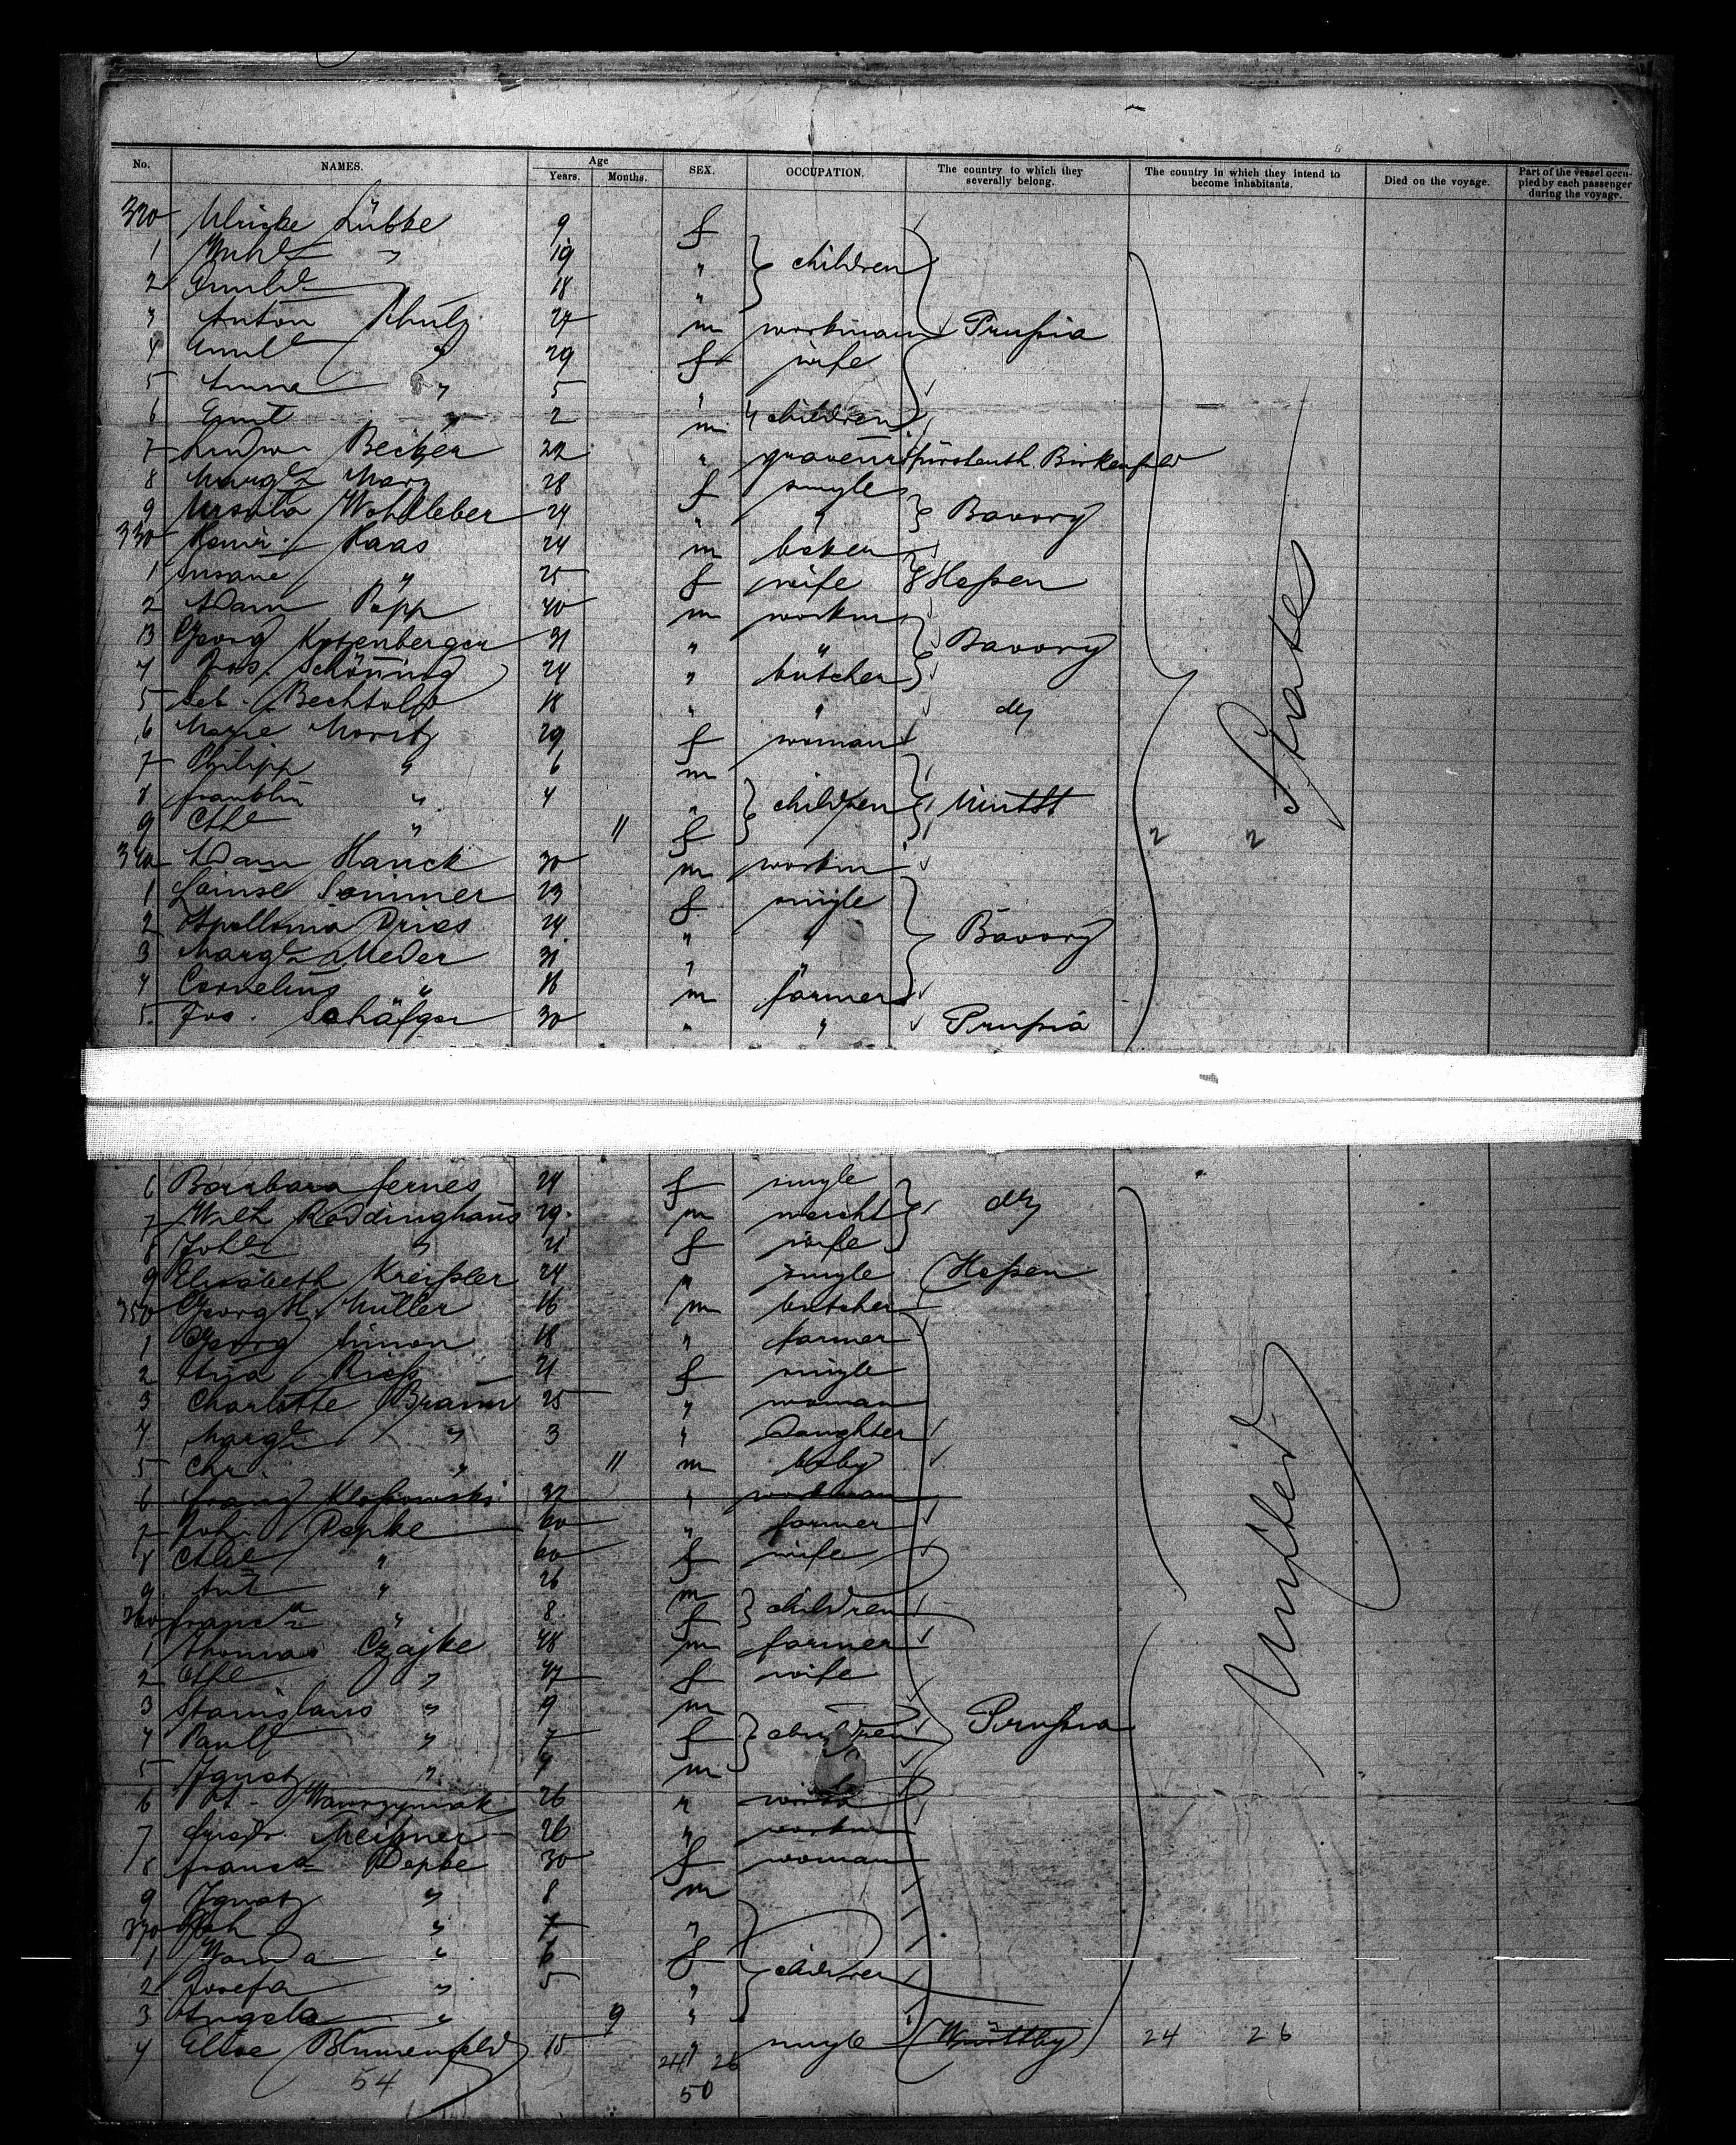 No. NAMES. Age Years. Months. SEX. OCCUPATION. The country to which they severally belong. The country in which they intend to become inhabitants. Died on the voyage. Part of the vessel occupied by each passenger during the voyage.
320 Ulrike Lübke 9 f
1 " 19 " children
2 18 "
3 Anton Schulz 27 m workman Prußia
4 " 29 f wife
5 Anna " 5 "
6 Ernst " 2 m children
7 Ludw. Becker 22 " graveur Fürstenth. Birkenfeld
8 Margt Marx 28 f single
9 Ursula Wohlleber 24 " " Bavory
330 Haas 24 m baker
1 Susane " 25 f wife Heßen
2 Adam Popp 40 m workm
3 Georg Kotzenberger 31 " " Bavory
4 Jos. Schönning 24 " butcher
5 Seb. Bechtold 18 " " do
6 Marie Moritz 29 f woman
7 Philipp " 6 m
8 Franklin " 4 " children
9 Cthe " 11 f 2 2
340 Adam Hauck 30 m workm
1 Louise Sommer 23 f single
2 Apollonia Dries 24 " " Bavory
3 Margt Meder 31 " "
4 Cornelius " 18 m farmer
5 Jos. Schäfger 30 " " Prußia
States
6 Barbara Fernes 24 f single
7 Wilh Reddinghaus 29 m marcht do
8 Johe " 21 f wife
9 Elisabeth Kreißler 24 " single Heßen
350 Georg H. Müller 16 m butcher
1 Georg Simon 18 " farmer
2 Rieß 21 f single
3 Charlotte Braun 25 " woman
4 Margt " 3 " Daughter
5 Chr. " 11 m baby
6 Franz Kloßowski 32 " workman
7 Joh. Depke 60 " farmer
8 Cthe " 60 f wife
9 Ant " 26 m
360 Franca " 8 f children
1 Thomas Czajke 48 m farmer
2 " 47 f wife
3 Stanislaus " 9 m
4 Paul " 7 f children Prußia
5 Ignatz " 4 m
6 Wawrzyniak 26 "
7 Friedr. Meißner 26 " workm
8 Franca Depke 30 f woman
9 Ignatz " 8 m
370 Joh " 7 "
1 Wanda " 6 f
2 Josefa " 5 " children
3 Angela " 9 "
4 Elise Blumenfeld 15 " single 24 26
United
54
24 26
50